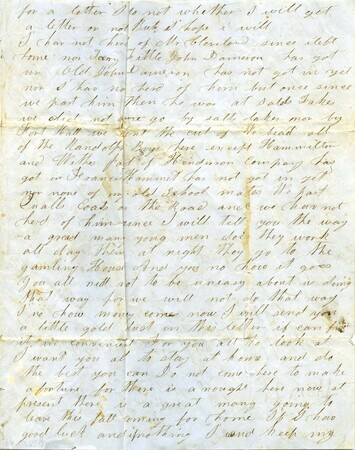 for a letter I do not whether I will get
a letter or not But I hope i will
I hav not herd of Mr Cleveland since i left
home nor Little John Dameron has got
in Old John Dameron has not got in yet
nor I has no herd of him but once since
we part him then he was at Salt Lake
we did not go by Salt lake nor by
Fort Hall we went the cut of to head all
of the Randolph Boys here except Hammilton
and Wether part of Henderson Company has
got in Francis Hammit has not got in yet
nor none of my old School mates We past
Coats on the Road and we hav not
herd of him since i will tell you the way
a good many young men does they work
all day then at night they go to the
gambling House and you no how it goes
You all need not to be uneasy about us doing
that way for we will not do that way
I no how money comes now I will send you
a little gold dust in this letter if i can fix
it in convenient For you all to look at
I want you all to stay at home and do
the best you can Do not come here to make
a fortune for there is a nought here now at
present there is a great many going to
leave this fall coming for home If I hav
good luck and if nothing I will keep my